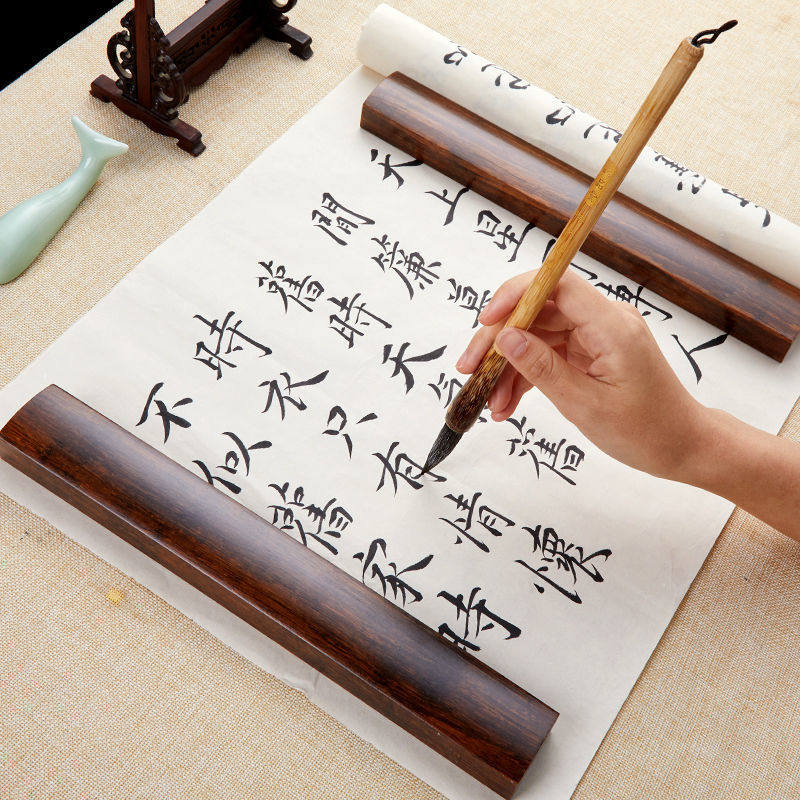 天上星人
間簾
舊時天氣舊
時衣只有情懷
不似舊家時